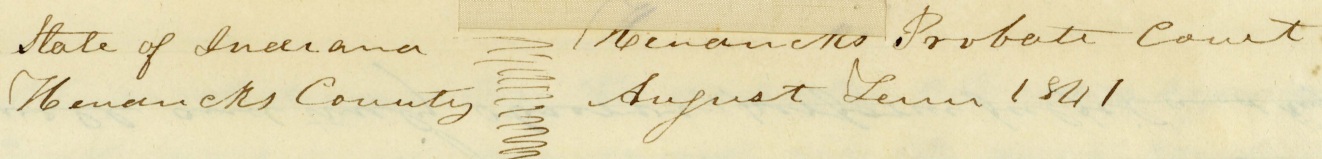 State of Indiana
Hendricks County
Hendricks Probate Court
August Term 1841